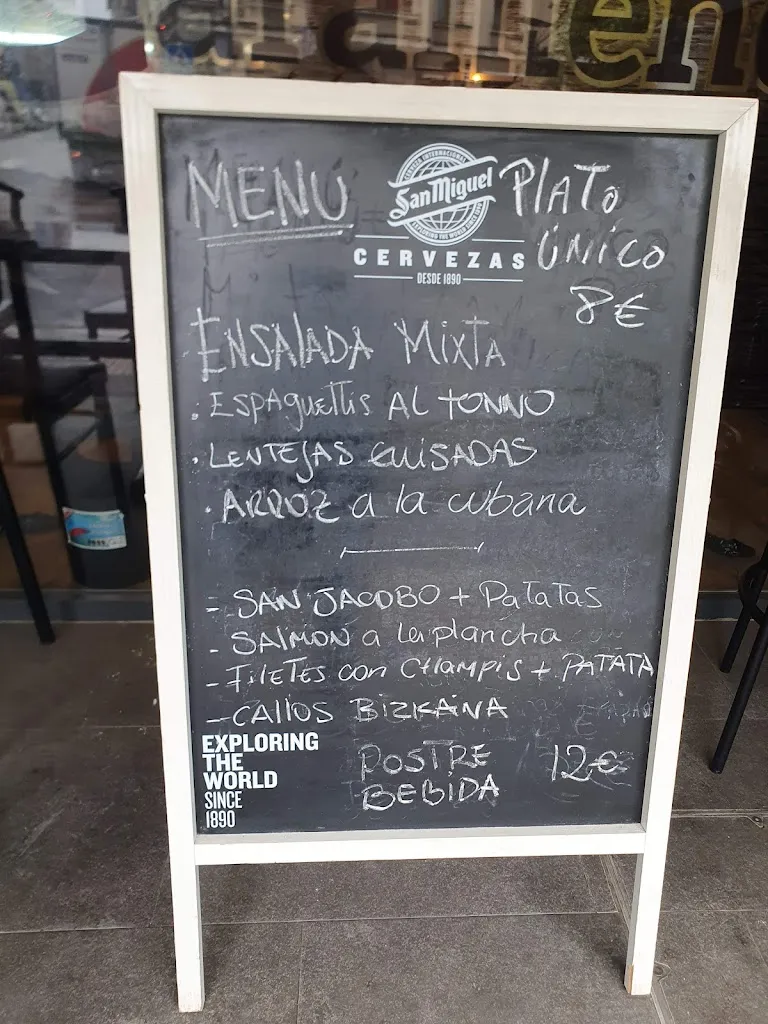 MENÚ
CERVEZA INTERNACIONAL
San Miguel
EXPLORING THE WORLD SINCE 1890
CERVEZAS
DESDE 1890
PLATO
ÚNICO
8€
ENSALADA MIXTA
· ESPAGUETTIS AL TONNO
· LENTEJAS GUISADAS
· ARROZ a la cubana
- SAN JACOBO + PATATAS
- SALMON a la plancha
- FILETES con CHAMPIS + PATATA
- CALLOS BIZKAÍNA
POSTRE 12€
BEBIDA
EXPLORING
THE
WORLD
SINCE
1890